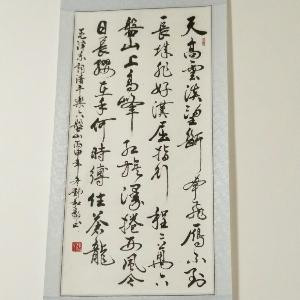 天高雲淡望斷南飛雁不到
長城非好漢屈指行程二萬六
盤山上高峰紅旗漫捲西風今
日長纓在手何時縛住蒼龍
毛澤東詞清平樂六盤山丙申年